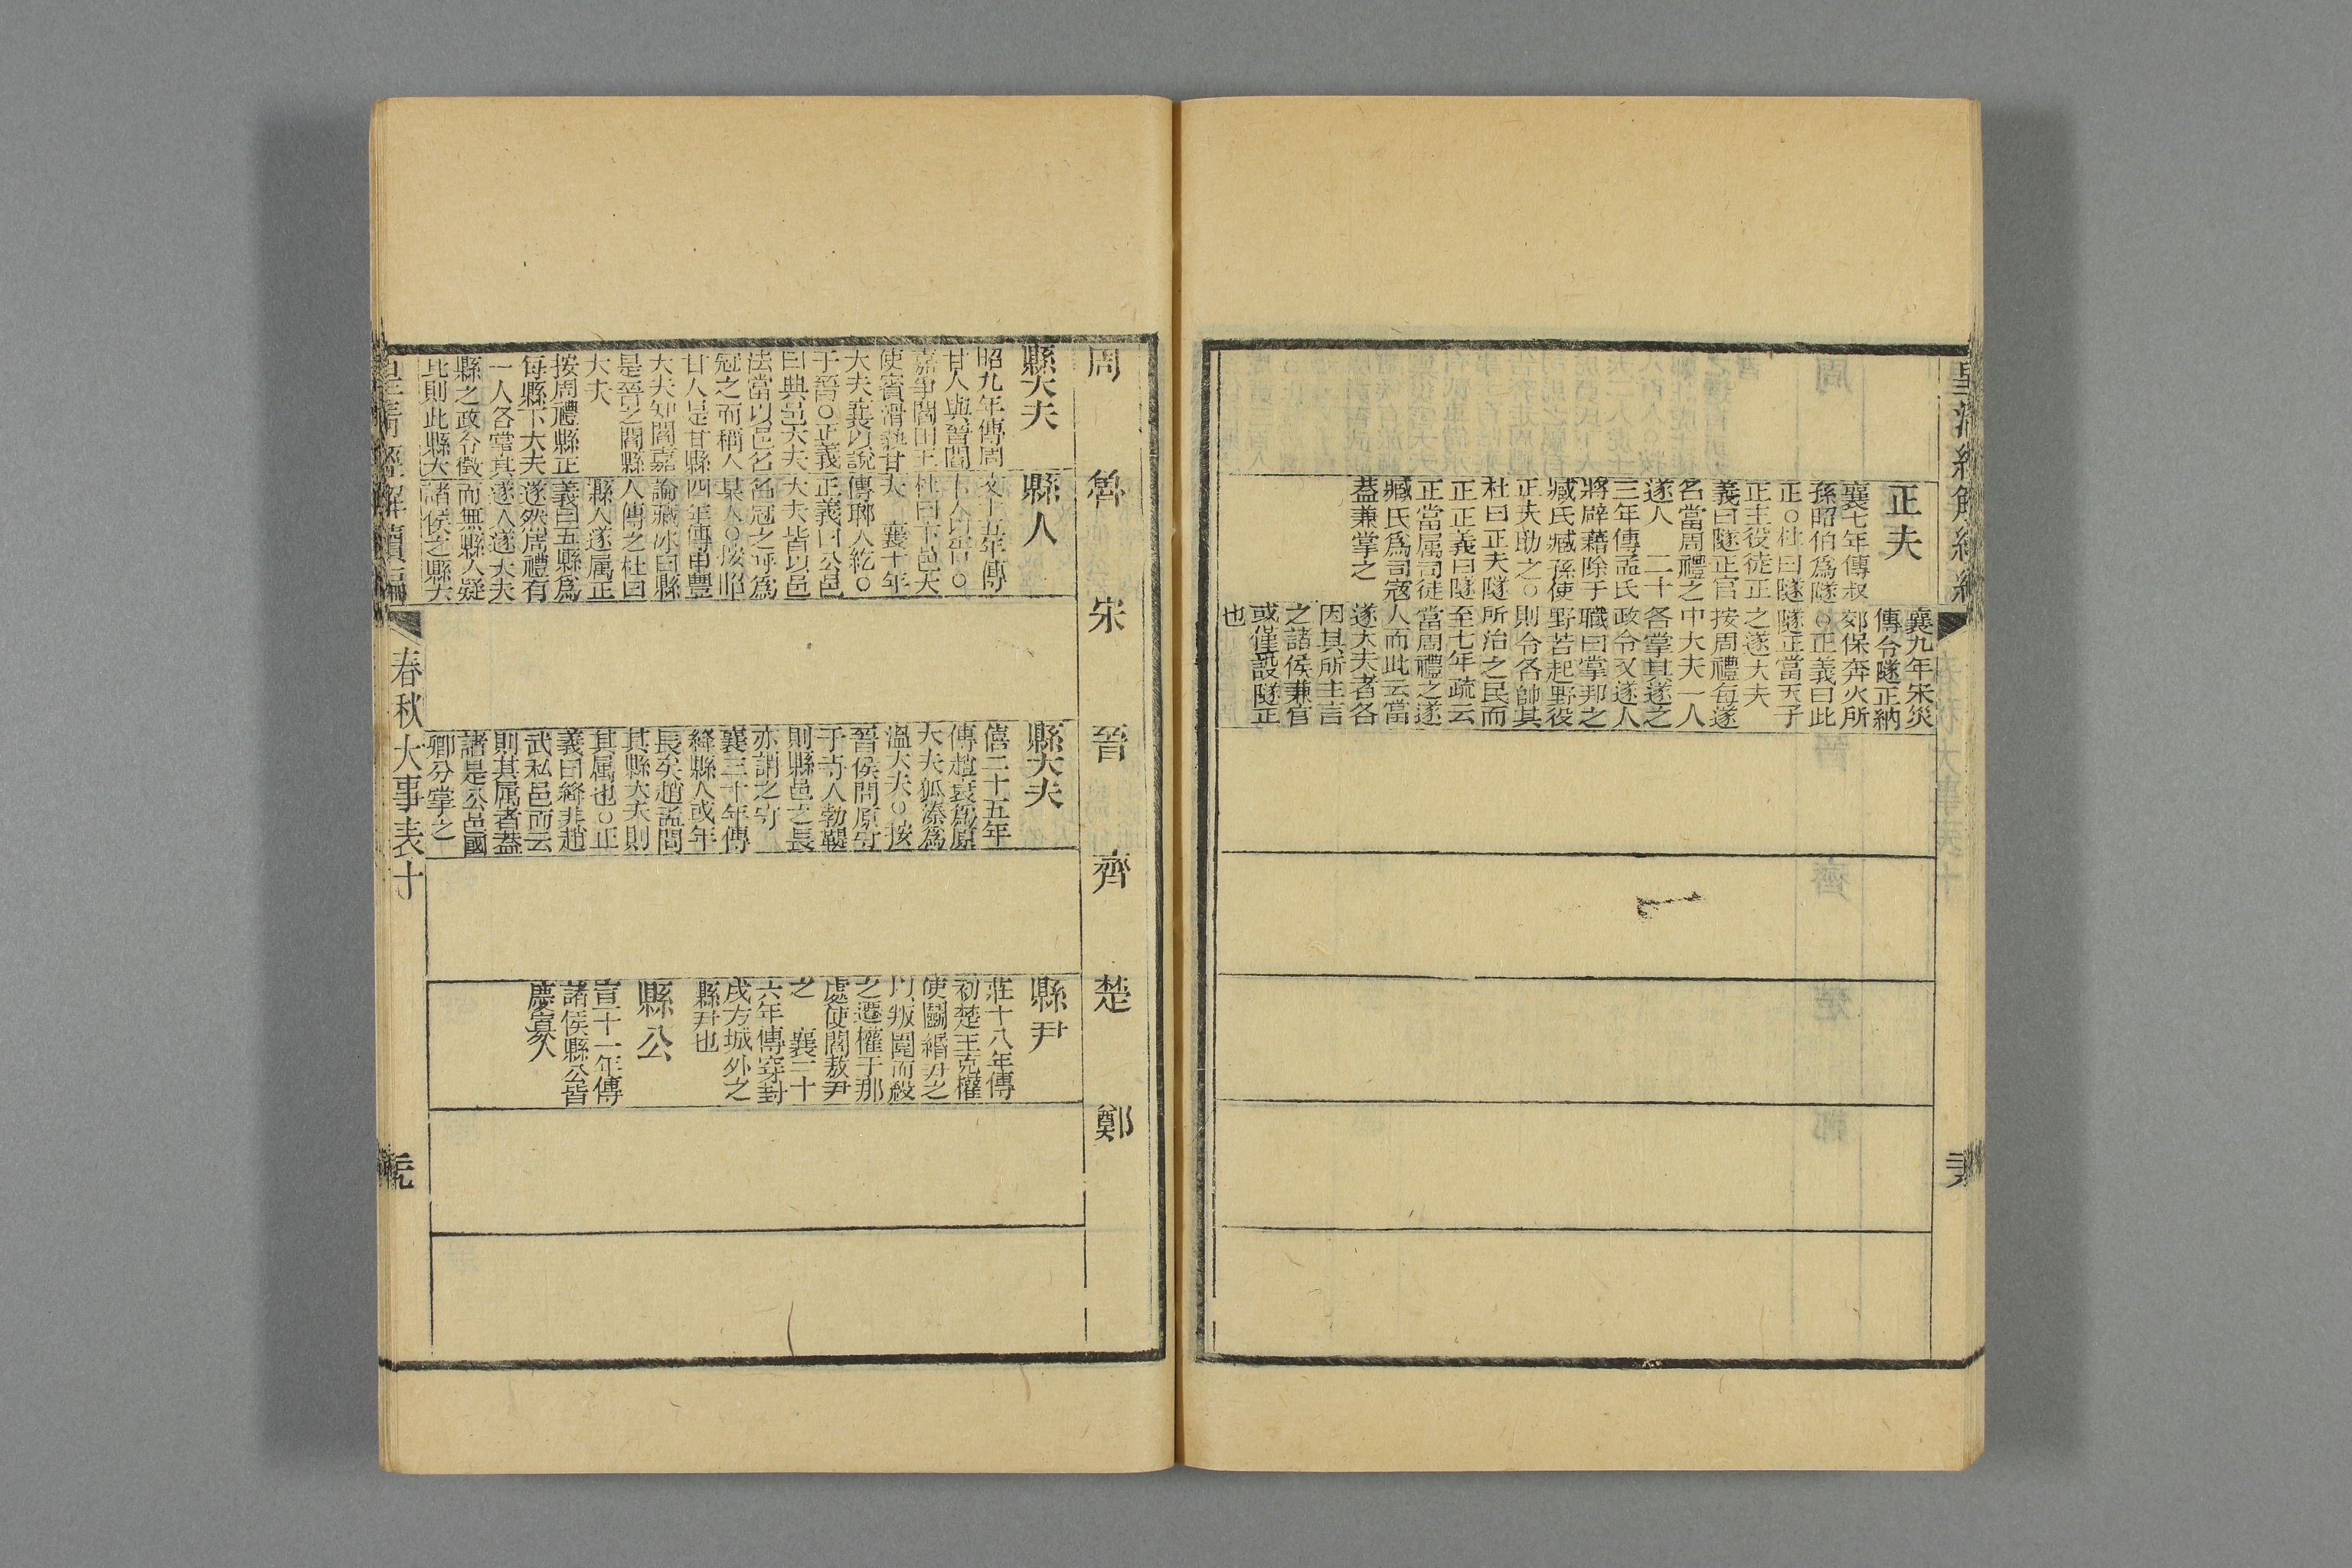 皇清經解續編
正夫
襄七年傳叔
孫昭伯爲隧
正○杜曰隧
正主役徒正
義曰隧正官
名當周禮之
遂人 二十
三年傳孟氏
將辟藉除于
臧氏臧孫使
正夫助之○
杜曰正夫隧
正正義曰隧
正當属司徒
臧氏爲司寇
葢兼掌之
襄九年宋災
傳令隧正納
郊保奔火所
○正義曰此
隧正當天子
之遂大夫
按周禮每遂
中大夫一人
各掌其遂之
政令又遂人
職曰掌邦之
野若起野役
則令各帥其
所治之民而
至七年疏云
當周禮之遂
人而此云當
遂大夫者各
因其所主言
之諸侯兼官
或僅設隧正
也
周
魯
宋
晉
齊
楚
鄭
縣大夫
昭九年傳周
甘人與晉閻
嘉爭閻田王
使賓滑執甘
大夫襄以說
于晉○正義
曰典邑大夫
法當以邑名
冠之而稱人
甘人是甘縣
大夫知閻嘉
是晉之閻縣
大夫
按周禮縣正
每縣下大夫
一人各掌其
縣之政令徵
比則此縣大
縣人
文十五年傳
卞人以告○
杜曰卞邑大
夫 襄十年
傳郰人紇○
正義曰公邑
大夫皆以邑
名冠之呼爲
某人○按昭
四年傳申豐
論藏冰曰縣
人傳之杜曰
縣人遂属正
義曰五縣爲
遂然周禮有
遂人遂大夫
而無縣人疑
諸侯之縣大
縣大夫
僖二十五年
傳趙衰爲原
大夫狐溱爲
溫大夫○按
晉侯問原守
于寺人勃鞮
則縣邑之長
亦謂之守
襄三十年傳
絳縣人或年
長矣趙孟問
其縣大夫則
其属也○正
義曰絳非趙
武私邑而云
則其属者葢
諸是公邑國
卿分掌之
縣尹
莊十八年傳
初楚王克權
使鬭緡尹之
以叛圍而殺
之遷權于那
處使閻敖尹
之 襄二十
六年傳穿封
戌方城外之
縣尹也
縣公
宣十一年傳
諸侯縣公皆
慶寡人
皇清經解續編
春秋大事表十